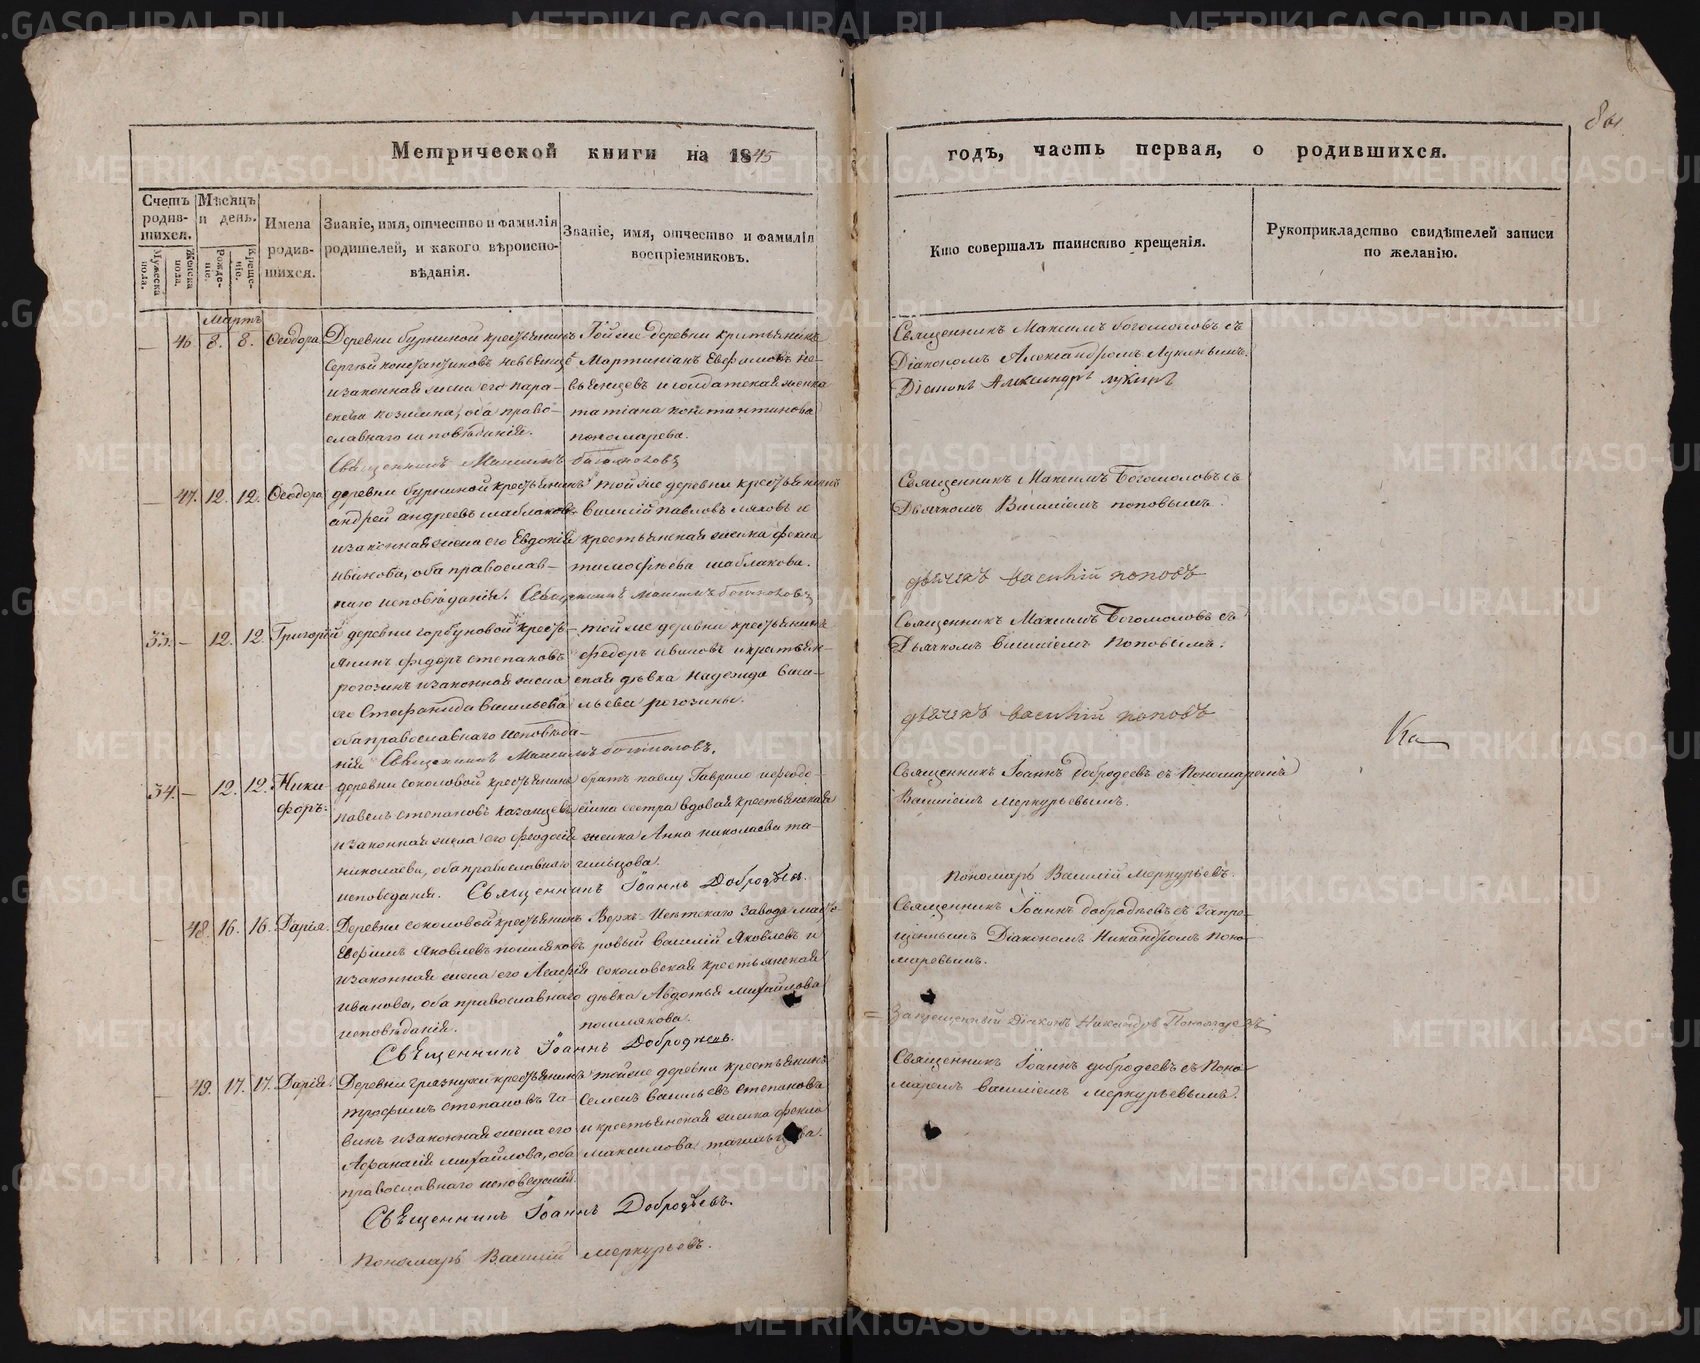 Метрической книги на 1845
годъ, часть первая, о родившихся.
Счетъ родив-шихся.
Мужеска пола.
Женска пола.
Мѣсяцъ и день.
Рожде-ніе.
Креще-ніе.
Имена родив-шихся.
Званіе, имя, отчество и фамилія родителей, и какого вѣроиспо-вѣданія.
Званіе, имя, отчество и фамилія воспріемниковъ.
Кто совершалъ таинство крещенія.
Рукоприкладство свидѣтелей записи по желанію.
Мартъ
46 8. 8. Ѳеодора
Деревни бурниной крестьянинъ
Сергѣй константиновъ
и законная жена его пара-
скева козмина, оба право-
славнаго исповѣданія.
Той же деревни
Мартиніанъ Евфимовъ
и солдатская женка
татіана константинова
пономарева.
Священникъ Максимъ богомоловъ
Священникъ Максимъ богомоловъ съ
Діакономъ Александромъ Лукинымъ.
Діаконъ Александръ лукинъ
47. 12. 12. Ѳеодора
деревни бурниной крестьянинъ
андрей андреевъ шаблаковъ
и законная жена его Евдокія
иванова, оба православ-
наго исповѣданія.
той же деревни крестьянинъ
василій павловъ
крестьянская женка фекла
тимофѣева шаблакова.
Священникъ Максимъ богомоловъ
Священникъ Максимъ Богомоловъ съ
Дьячкомъ Василіемъ поповымъ.
дьячекъ василій поповъ
33. 12. 12. Григорій
деревни горбуновой кресть-
янинъ федоръ степановъ
рогозинъ и законная жена
его Стефанида васильева
оба православнаго исповѣда-
нія
той же деревни крестьянинъ
федоръ ивановъ и крестьян-
ская дѣвка Надежда васи-
льева рогозины.
Священникъ Максимъ богомоловъ.
Священникъ Максимъ Богомоловъ съ
Дьячкомъ василіемъ Поповымъ.
дьячекъ василій поповъ
34. 12. 12. Ники-
форъ.
деревни соколовой крестьянинъ
павелъ степановъ казанцевъ
и законная жена его феодосія
николаева, оба православнаго
исповеданія.
братъ павлу Гаврило
сестра вдовая крестьянская
женка Анна николаева та-
гильцова.
Священникъ Іоаннъ Добродѣев.
Священникъ Іоаннъ добродеевъ съ Пономаремъ
Василіемъ меркурьевымъ.
Пономарь Василій меркурьевъ.
48. 16. 16. Дарія.
Деревни соколовой крестьянинъ
Ефимъ Яковлевъ пошляковъ
и законная жена его Агафія
иванова, оба православнаго
исповѣданія.
Верхъ-Исетскаго Завода масте-
ровый василій Яковлевъ и
соколовская крестьянская
дѣвка Авдотья михайлова
пошлякова.
Священникъ Іоаннъ Добродѣевъ.
Священникъ Іоаннъ добродѣевъ съ Запре-
щеннымъ Діакономъ Никандромъ Поно-
маревымъ.
Запрещенный Діаконъ Никандръ Пономаревъ
49. 17. 17. Дарія.
Деревни грязнухи крестьянинъ
трофимъ степановъ га-
винъ и законная жена его
Афанасія михайлова, оба
православнаго исповеданія.
той же деревни крестьянинъ
Семенъ васильевъ степановъ
и крестьянская женка фекла
максимова
Священникъ Іоаннъ Добродѣевъ.
Пономарь Василій меркурьевъ.
Священникъ Іоаннъ добродеевъ съ Поно-
маремъ василіемъ меркурьевымъ.
METRIKI.GASO-URAL.RU